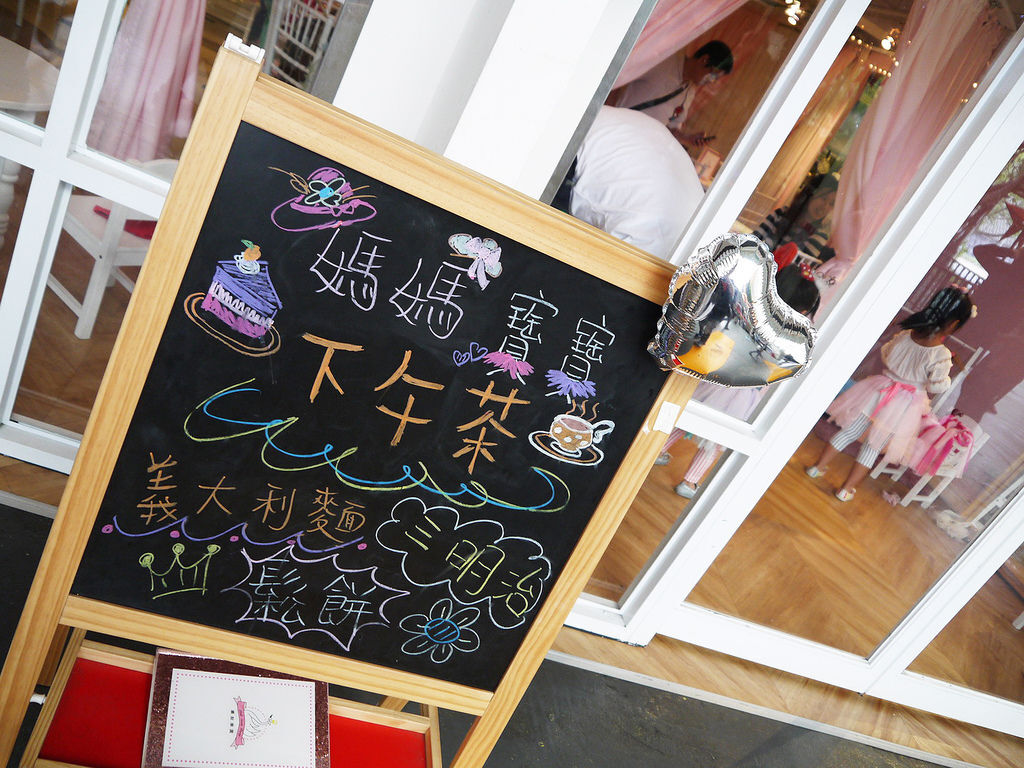 媽媽寶寶
下午茶
義大利麵
三明治
鬆餅